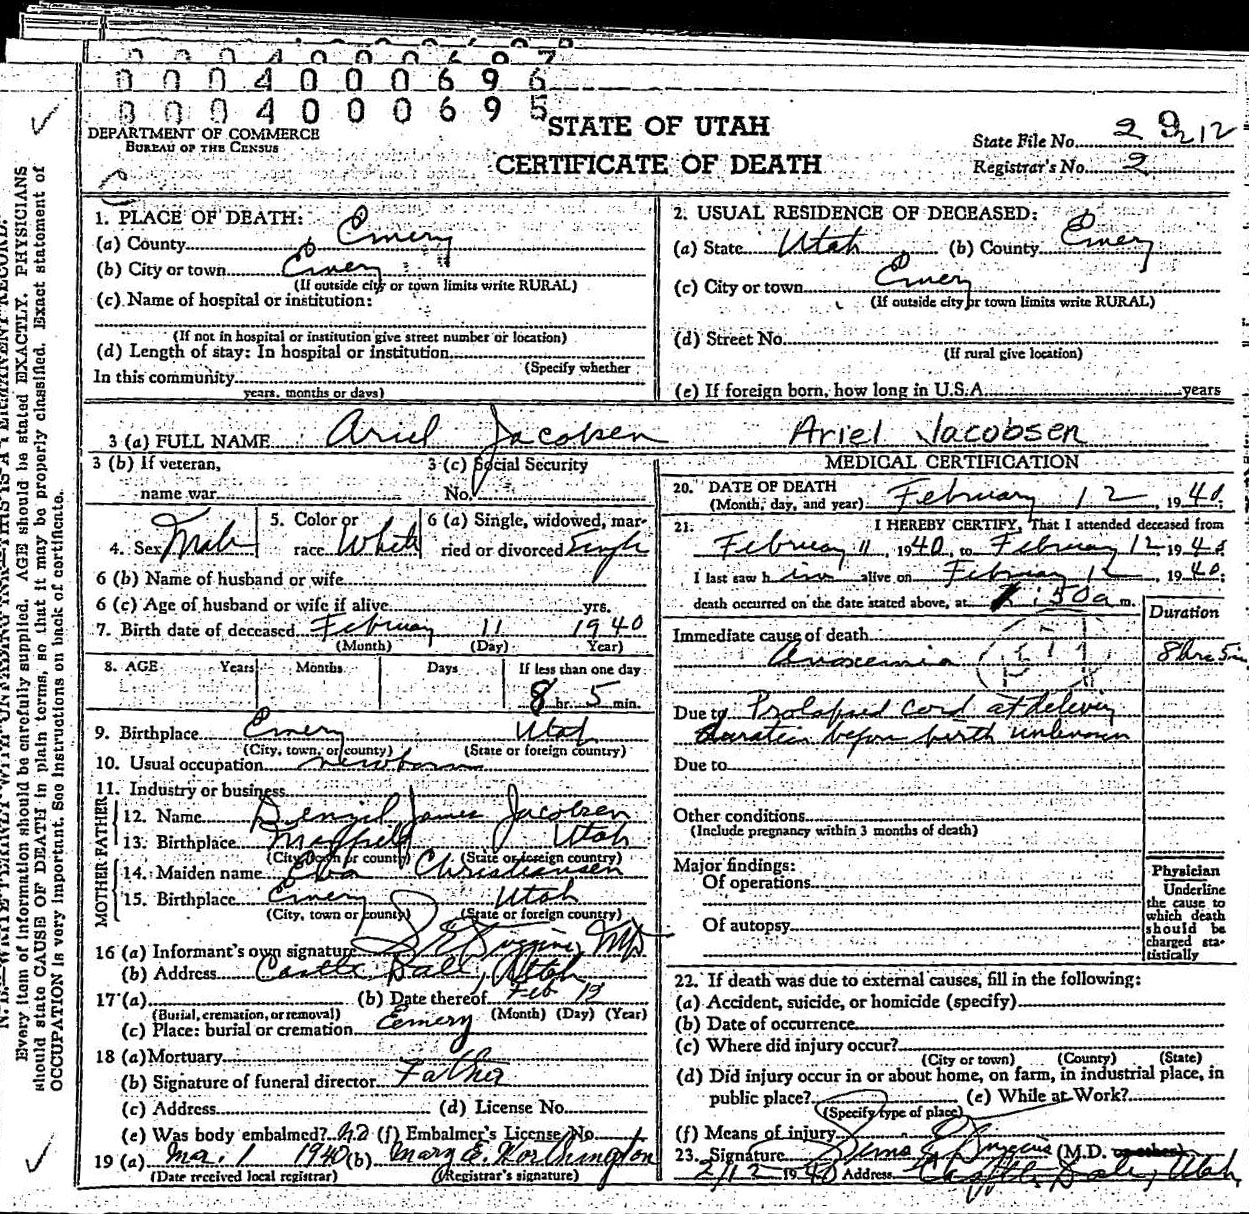 0004000696
0004000695
DEPARTMENT OF COMMERCE
BUREAU OF THE CENSUS
STATE OF UTAH
CERTIFICATE OF DEATH
State File No.
Registrar's No. 2
1. PLACE OF DEATH:
(a) County Emery
(b) City or town Emery
(If outside city or town limits write RURAL)
(c) Name of hospital or institution:
(If not in hospital or institution give street number or location)
(d) Length of stay: In hospital or institution
(Specify whether
In this community
years, months or days)
2. USUAL RESIDENCE OF DECEASED:
(a) State Utah (b) County Emery
(c) City or town Emery
(If outside city or town limits write RURAL)
(d) Street No.
(If rural give location)
(e) If foreign born, how long in U.S.A. years
3 (a) FULL NAME Ariel Jacobsen Ariel Jacobsen
3 (b) If veteran,
name war
3 (c) Social Security
No.
4. Sex Male
5. Color or
race White
6 (a) Single, widowed, mar-
ried or divorced Single
6 (b) Name of husband or wife
6 (c) Age of husband or wife if alive yrs.
7. Birth date of deceased February 11 1940
(Month) (Day) Year)
8. AGE Years Months Days If less than one day
8 hr. 5 min.
9. Birthplace Emery Utah
(City, town, or county) (State or foreign country)
10. Usual occupation newborn
11. Industry or business
FATHER
12. Name Denzil James Jacobsen
13. Birthplace Utah
(City, town or county) (State or foreign country)
MOTHER
14. Maiden name Christiansen
15. Birthplace Emery Utah
(City, town or county) (State or foreign country)
16 (a) Informant's own signature
(b) Address Castle Dale, Utah
17 (a) (b) Date thereof Feb
(Burial, cremation, or removal) (Month) (Day) (Year)
(c) Place: burial or cremation Emery
18 (a) Mortuary
(b) Signature of funeral director Father
(c) Address (d) License No.
(e) Was body embalmed? no (f) Embalmer's License No.
19 (a) Mar. 1 1940 (b) Mary E. Worthington
(Date received local registrar) (Registrar's signature)
MEDICAL CERTIFICATION
20. DATE OF DEATH
(Month, day, and year) February 12, 1940
21. I HEREBY CERTIFY, That I attended deceased from
February 11, 1940, to February 12 1940
I last saw him alive on February 12, 1940;
death occurred on the date stated above, at :50 a m.
Duration
Immediate cause of death
Anoxemia 8 hrs 5 min
Due to Prolapsed cord at delivery
duration before birth unknown
Due to
Other conditions
(Include pregnancy within 3 months of death)
Major findings:
Of operations
Of autopsy
Physician
Underline
the cause to
which death
should be
charged sta-
tistically
22. If death was due to external causes, fill in the following:
(a) Accident, suicide, or homicide (specify)
(b) Date of occurrence
(c) Where did injury occur?
(City or town) (County) (State)
(d) Did injury occur in or about home, on farm, in industrial place, in
public place? (e) While at Work?
(Specify type of place)
(f) Means of injury
23. Signature (M.D. or other)
2/12 1940 Address Castle Dale, Utah
Every item of information should be carefully supplied. AGE should be stated EXACTLY. PHYSICIANS
should state CAUSE OF DEATH in plain terms, so that it may be properly classified. Exact statement of
OCCUPATION is very important. See instructions on back of certificate.